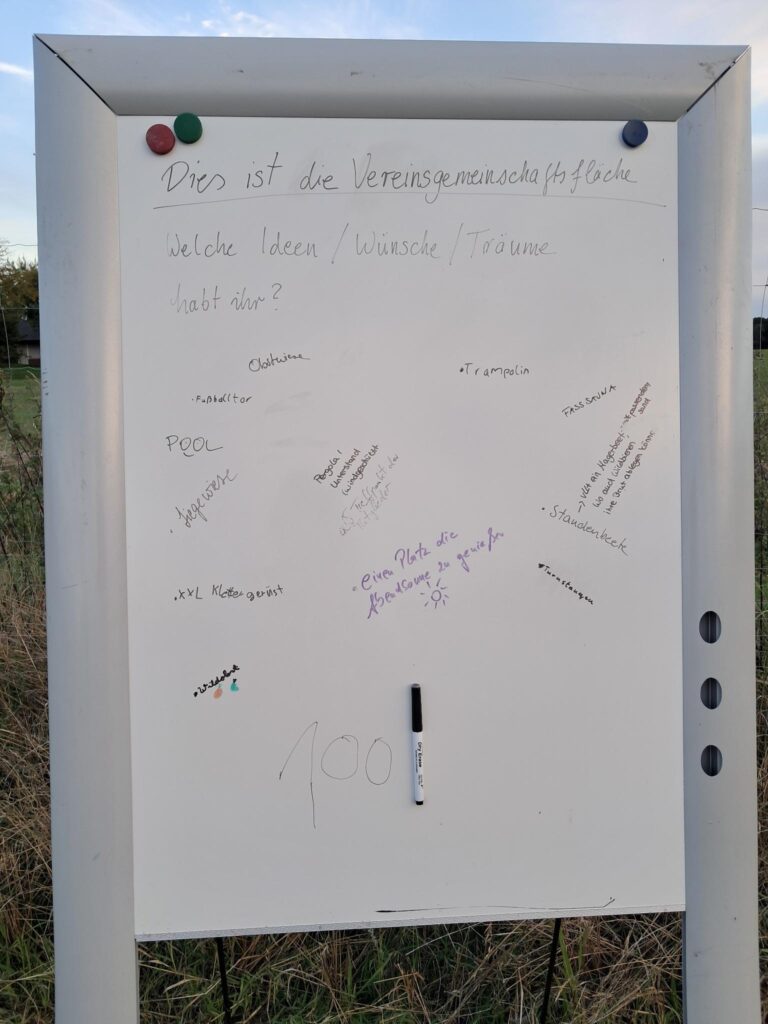 Dies ist die Vereinsgemeinschaftsfläche
Welche Ideen / Wünsche / Träume
habt ihr?
Obstwiese
• Trampolin
• Fußballtor
FASSSAUNA
POOL
Pergola /
Unterstand
(windgeschützt)
als Treffpunkt der
• Liegewiese
→ vllt ein Magerbeet mit passendem Sand
wo auch Wildbienen
ihre Brut ablegen können
• Staudenbeete
• einen Platz die
Abendsonne zu genießen
• XXL Klettergerüst
• Turnstangen
• Wildobst
100
Dry Erase